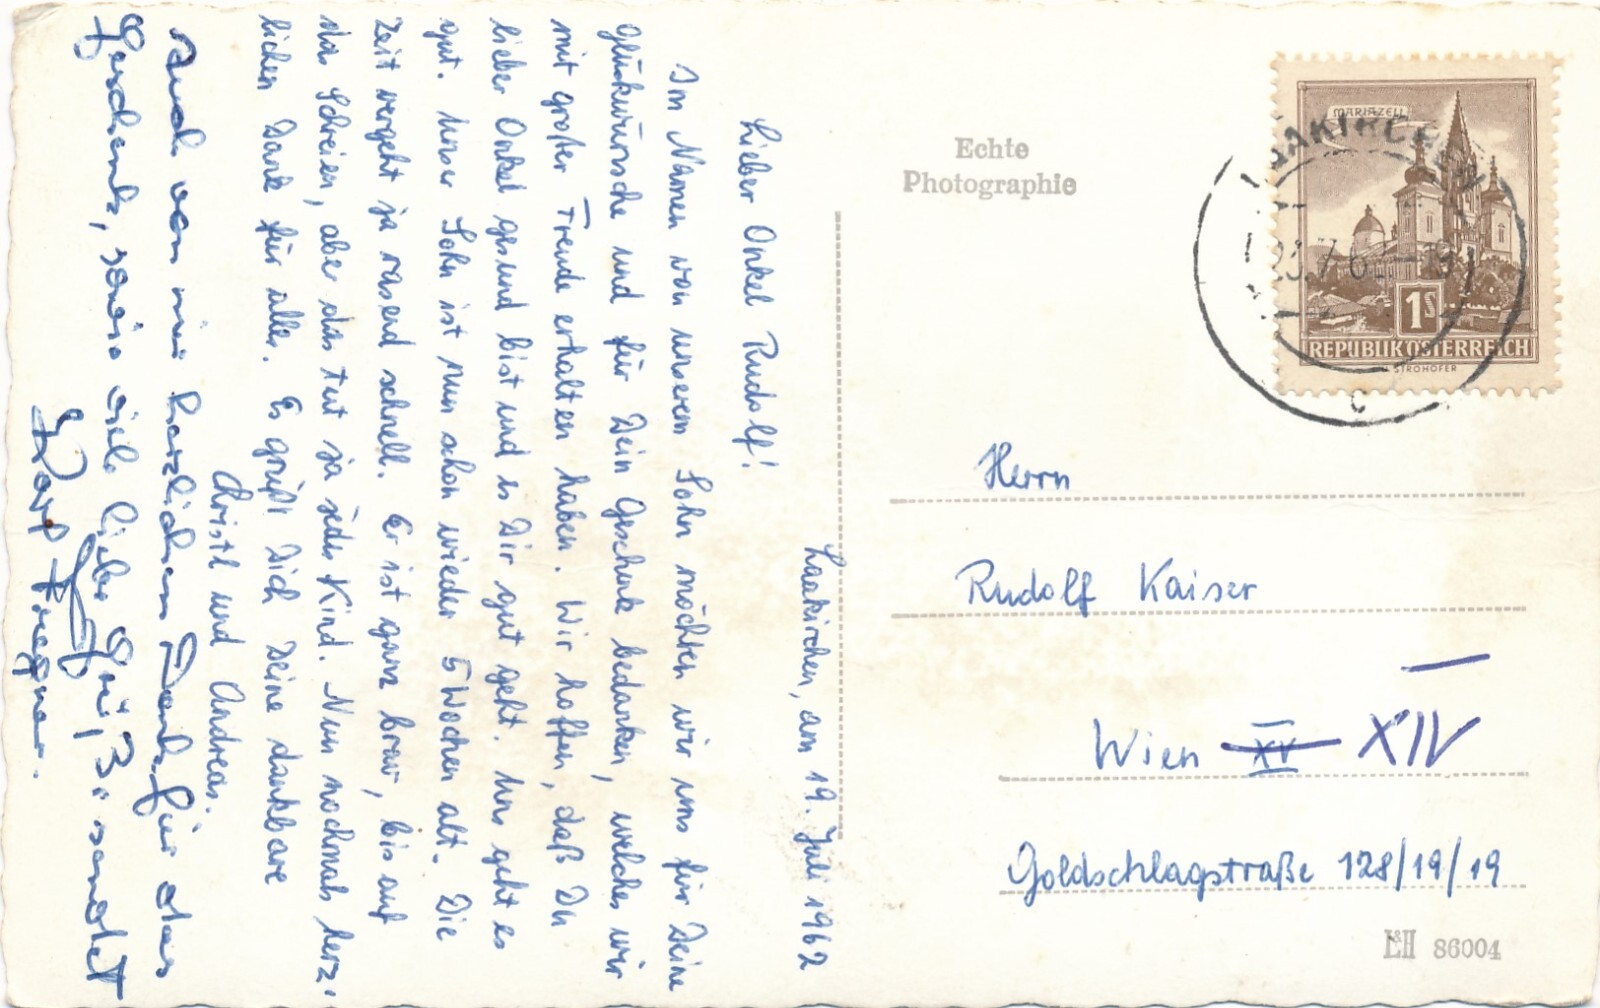 Laakirchen, am 19. Juli 1962
Lieber Onkel Rudolf!
Im Namen von unserem Sohn möchten wir uns für Deine
Glückwünsche und für Dein Geschenk bedanken, welches wir
mit großer Freude erhalten haben. Wir hoffen, daß Du
lieber Onkel gesund bist und es Dir gut geht. Uns geht es
gut. Unser Sohn ist nun schon wieder 5 Wochen alt. Die
Zeit vergeht ja rasend schnell. Er ist ganz brav, bis auf
das Schreien, aber das tut ja jedes Kind. Nun nochmals herz-
lichen Dank für alles. Es grüßt Dich Deine dankbare
Christl und Andreas.
Auch von mir herzlichen Dank für das
Geschenk, sowie viele liebe Grüße sendet
Karl
Echte
Photographie
MARIAZELL
1S
REPUBLIK ÖSTERREICH
STROHOFER
LAAKIRCHEN
C
Herrn
Rudolf Kaiser
Wien XV XIV
Goldschlagstraße 128/19/19
86004